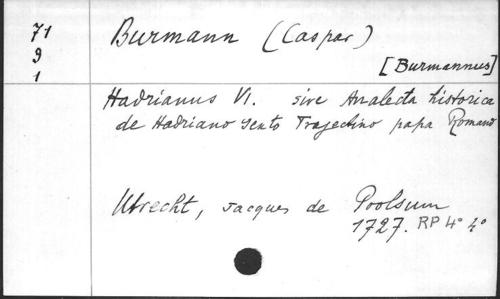 71
9
1
Burmann (Caspar)
[Burmannus]
Hadrianus VI. sive Analecta historica
de Hadriano Sexto Trajectino papa Romano
Utrecht, Jacques de Poolsum
1727. RP 4° 4°